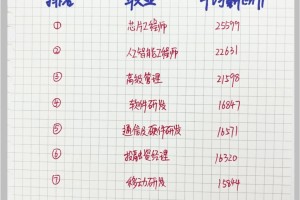 排名 职业 平均薪酬
① 芯片工程师 25599
② 人工智能工程师 22631
③ 高级管理 21598
④ 软件研发 16847
⑤ 通信及硬件研发 16571
⑥ 投融资经理 16320
⑦ 移动研发 15844